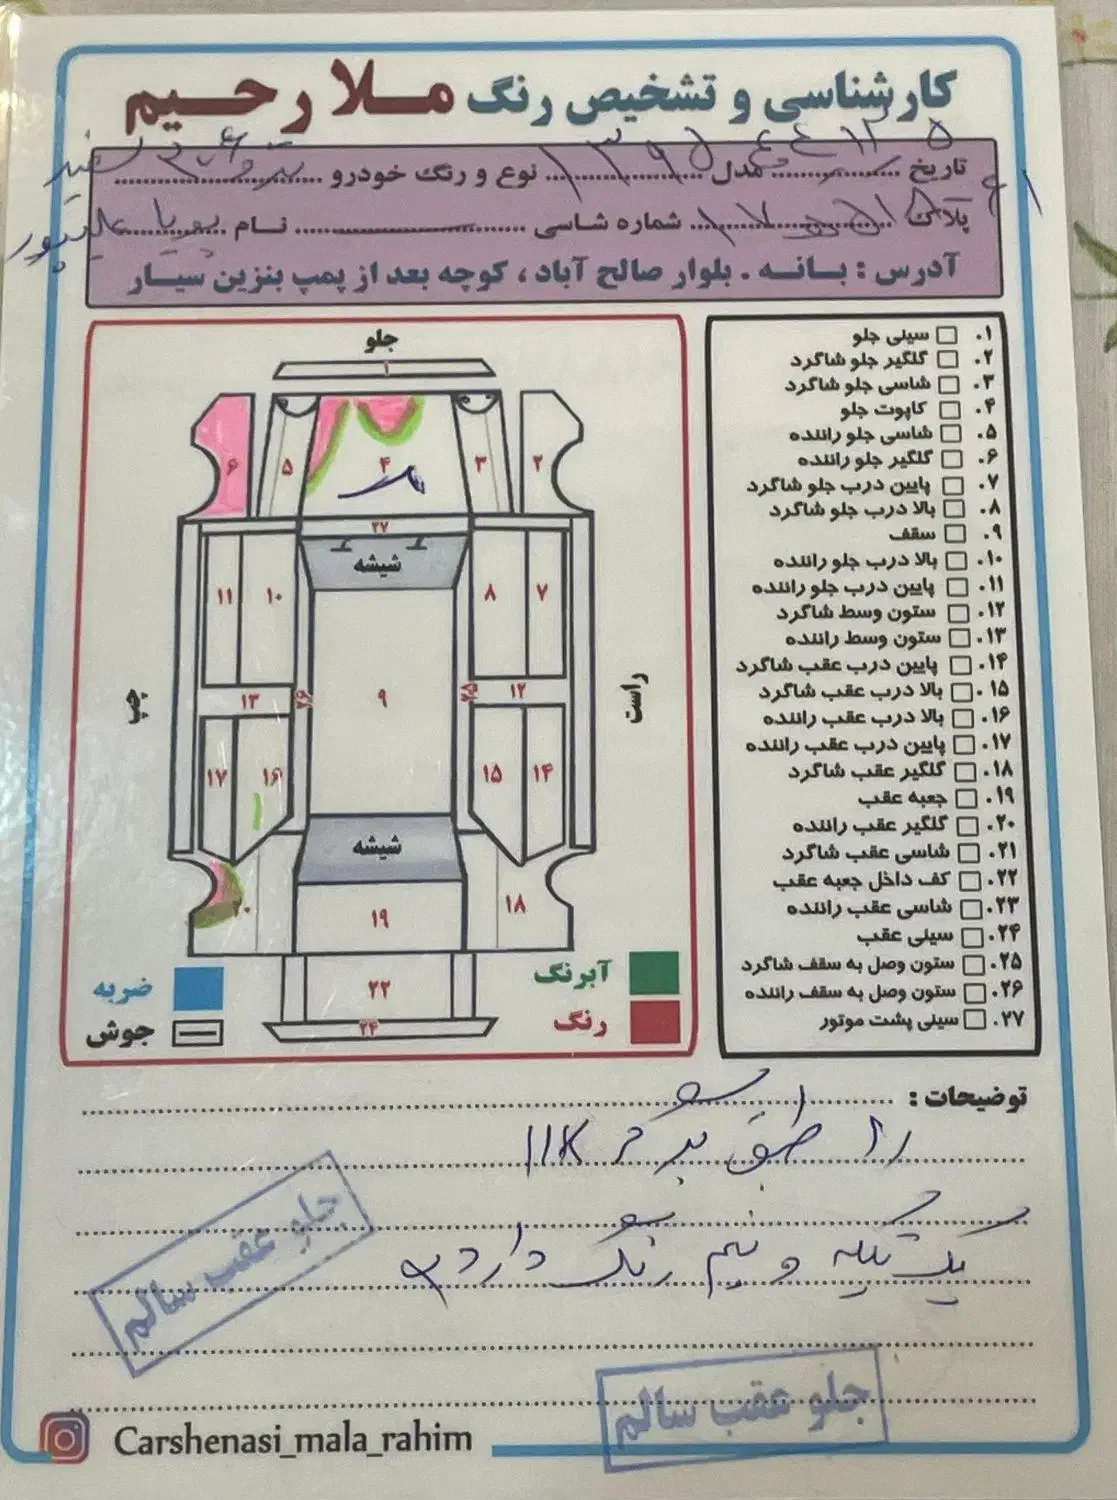 کارشناسی و تشخیص رنگ ملا رحیم
تاریخ مدل ۱۳۹۵ نوع و رنگ خودرو سفید
پلاک شماره شاسی نام پوریا
آدرس : بانه . بلوار صالح آباد ، کوچه بعد از پمپ بنزین سیار
۱. سینی جلو
۲. گلگیر جلو شاگرد
۳. شاسی جلو شاگرد
۴. کاپوت جلو
۵. شاسی جلو راننده
۶. گلگیر جلو راننده
۷. پایین درب جلو شاگرد
۸. بالا درب جلو شاگرد
۹. سقف
۱۰. بالا درب جلو راننده
۱۱. پایین درب جلو راننده
۱۲. ستون وسط شاگرد
۱۳. ستون وسط راننده
۱۴. پایین درب عقب شاگرد
۱۵. بالا درب عقب شاگرد
۱۶. بالا درب عقب راننده
۱۷. پایین درب عقب راننده
۱۸. گلگیر عقب شاگرد
۱۹. جعبه عقب
۲۰. گلگیر عقب راننده
۲۱. شاسی عقب شاگرد
۲۲. کف داخل جعبه عقب
۲۳. شاسی عقب راننده
۲۴. سینی عقب
۲۵. ستون وصل به سقف شاگرد
۲۶. ستون وصل به سقف راننده
۲۷. سینی پشت موتور
جلو
۱
۶ ۵ ۴ ۳ ۲
۲۷
شیشه
۱۱ ۱۰ ۸ ۷
چپ
راست
۱۳ ۲۶ ۹ ۲۵ ۱۲
۱۷ ۱۶ ۱۵ ۱۴
شیشه
۲۰ ۱۹ ۱۸
۲۲
۲۴
آبرنگ
رنگ
ضربه
جوش
توضیحات :
طبق برگ
یک تیکه و نیم رنگ دارد
جلو عقب سالم
جلو عقب سالم
Carshenasi_mala_rahim